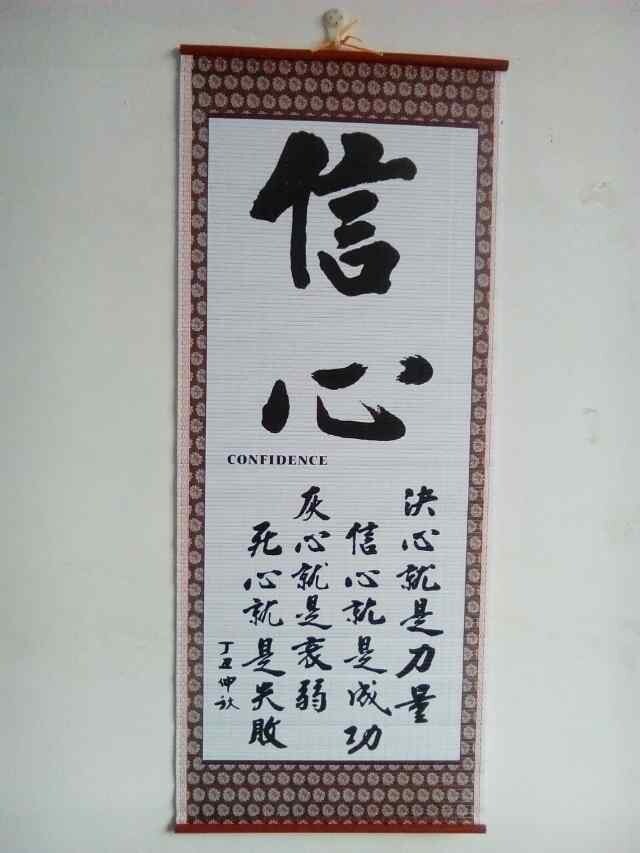 信心
CONFIDENCE
決心就是力量
信心就是成功
灰心就是衰弱
死心就是失敗
丁丑仲秋